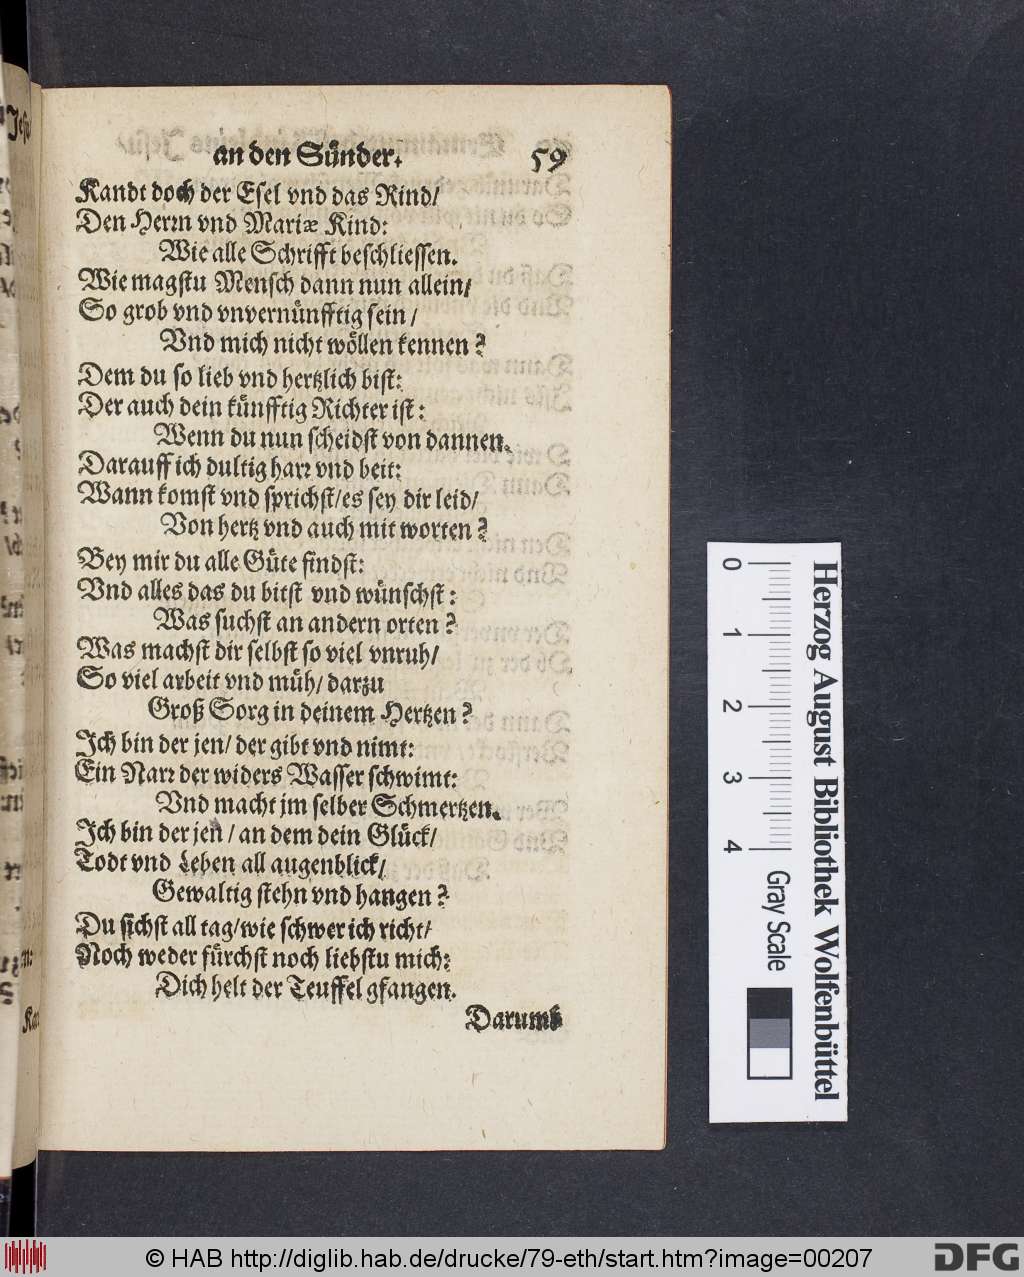 an den Sünder. 59
Kandt doch der Esel vnd das Rind/
Den Herrn vnd Mariæ Kind:
Wie alle Schrifft beschliessen.
Wie magstu Mensch dann nun allein/
So grob vnd vnvernünfftig sein/
Vnd mich nicht wöllen kennen?
Dem du so lieb vnd hertzlich bist:
Der auch dein künfftig Richter ist:
Wenn du nun scheidst von dannen.
Darauff ich dultig harr vnd beit:
Wann komst vnd sprichst/es sey dir leid/
Von hertz vnd auch mit worten?
Bey mir du alle Güte findst:
Vnd alles das du bitst vnd wünschst:
Was suchst an andern orten?
Was machst dir selbst so viel vnruh/
So viel arbeit vnd müh/ darzu
Groß Sorg in deinem Hertzen?
Ich bin der jen/ der gibt vnd nimt:
Ein Narr der widers Wasser schwimt:
Vnd macht jm selber Schmertzen.
Ich bin der jen/ an dem dein Glück/
Todt vnd Leben all augenblick/
Gewaltig stehn vnd hangen?
Du sichst all tag/wie schwer ich richt/
Noch weder fürchst noch liebstu mich:
Dich helt der Teuffel gfangen.
Darumb
0 1 2 3 4
Gray Scale
Herzog August Bibliothek Wolfenbüttel
© HAB http://diglib.hab.de/drucke/79-eth/start.htm?image=00207
DFG